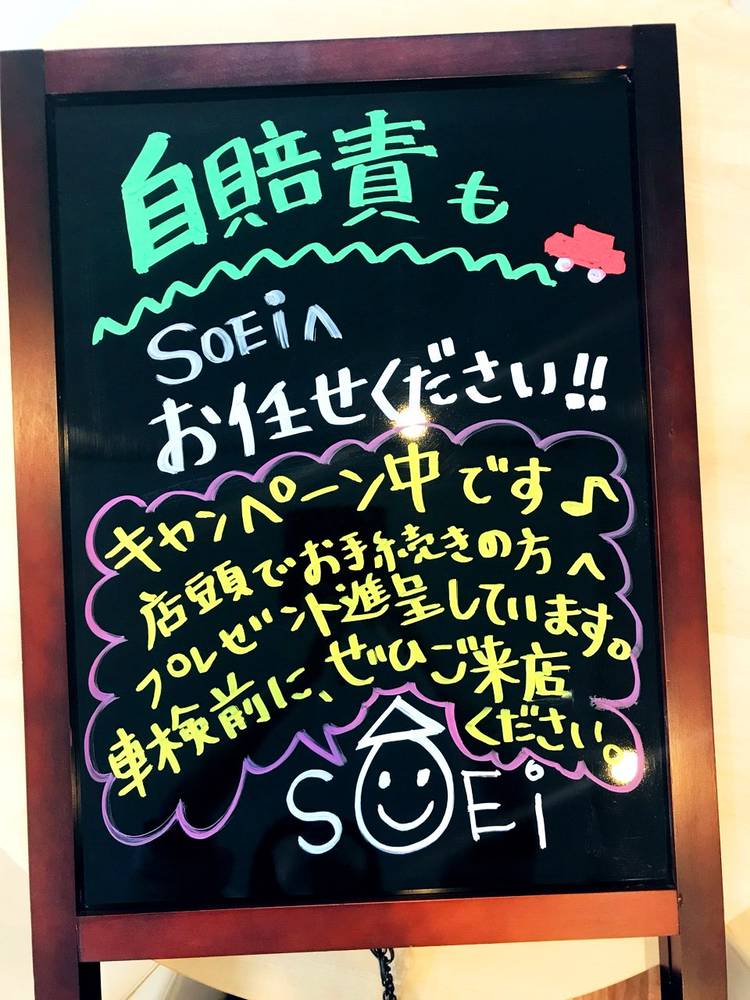 自賠責も
SOEiへ
お任せください!!
キャンペーン中です♪
店頭でお手続きの方へ
プレゼント進呈しています。
車検前に、ぜひご来店
ください。
SOEi